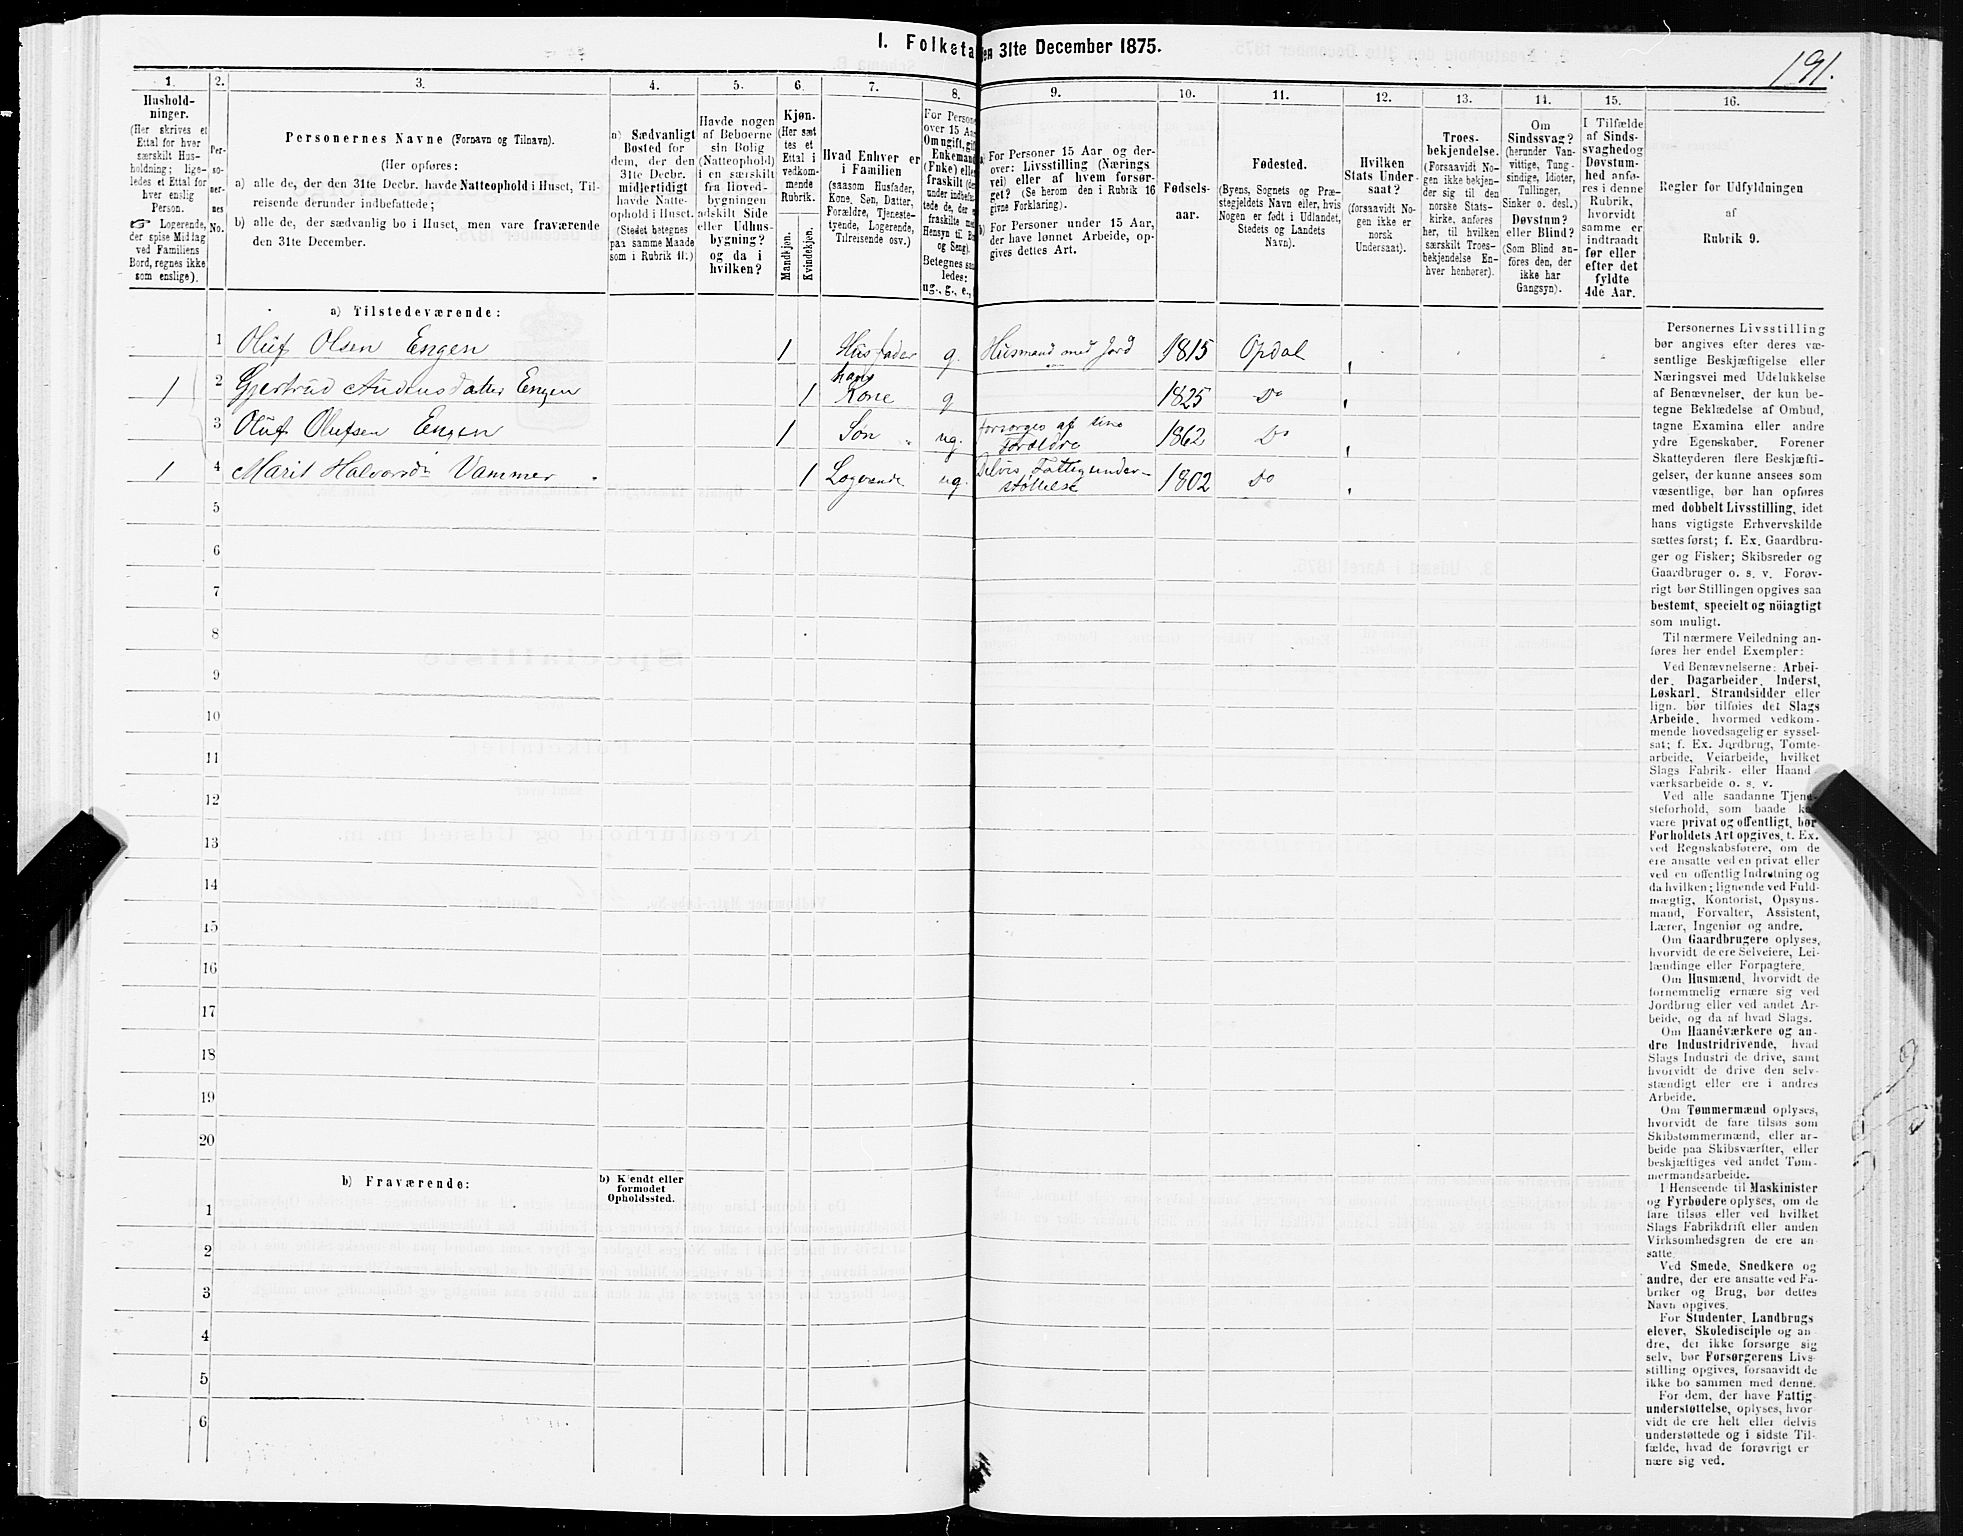 I. Folketa
en 31te December 1875.
191.
1.
Hushold-
ninger.
(Her skrives et
Ettal for hver
særskilt Hus-
holdning; lige-
ledes et Ettal for
hver enslig
Person.
☞ Logerende,
der spise Middag
ved Familiens
Bord, regnes ikke
som enslige).
2.
Per-
so-
ner-
nes
No.
3.
Personernes Navne (Fornavn og Tilnavn).
(Her opføres:
a) alle de, der den 31te Decbr. havde Natteophold i Huset, Til-
reisende derunder indbefattede;
b) alle de, der sædvanlig bo i Huset, men vare fraværende
den 31te December.
4.
a) Sædvanligt
Bosted for
dem, der den
31te Decbr.
midlertidigt
havde Natte-
ophold i Huset.
(Stedet betegnes
paa samme Maade
som i Rubrik 11.)
5.
Havde nogen
af Beboerne
sin Bolig
(Natteophold)
i en særskilt
fra Hoved-
bygningen
adskilt Side
eller Udhus-
bygning?
og da i
hvilken?
6.
Kjøn.
(Her sæt
tes et
Ettal i
vedkom-
mende
Rubrik.
Mandkjøn.
Kvindekjøn.
7.
Hvad Enhver er
i Familien
(saasom Husfader,
Kone, Søn, Datter,
Forældre, Tjeneste-
tyende, Logerende,
Tilreisende osv.)
8.
For Person
over 15 Aa
Om ugift, gif
Enkemand
(Fuke) elle
fraskilt (de
under indbefat-
tede de, der e
fraskilte me
Hensyn til Bo
og Seng).
Betegnes saa
ledes:
ug., g., e.,
9.
a) For Personer 15 Aar og der-
over: Livsstilling (Nærings
vei) eller af hvem forsør-
get? (Se herom den i Rubrik 16
givne Forklaring).
b) For Personer under 15 Aar,
der have lønnet Arbeide, op-
gives dettes Art.
10.
Fødsels-
aar.
11.
Fødested.
(Byens, Sognets og Præ-
stegjeldets Navn eller, hvis
Nogen er født i Udlandet,
Stedets og Landets
Navn).
12.
Hvilken
Stats Under-
saat?
(forsaavidt No-
gen ikke er
norsk
Undersaat).
13.
Troes-
bekjendelse.
(Forsaavidt No-
gen ikke bekjen-
der sig til den
norske Stats-
kirke, anføres
her, til hvilken
særskilt Troes-
bekjendelse En-
hver henhører).
14.
Om
Sindssvag?
(herunder Van-
vittige, Tung-
sindige, Idioter,
Tullinger,
Sinker o. desl.)
Døvstum?
eller Blind?
(Som Blind an-
føres den, der
ikke har
Gangsyn).
15.
I Tilfælde
af Sinds-
svaghed og
Døvstum-
hed anfø-
res i denne
Rubrik,
hvorvidt
samme er
indtraadt
før eller
efter det
fyldte
4de Aar.
16.
Regler for Udfyldningen
af
Rubrik 9.
a) Tilstedeværende:
1 Oluf Olsen Engen 1 Husfader g. Husmand med Jord 1815 Opdal
1 2 Gjertrud Audensdatter Engen 1 hans Kone g 1825 Do
3 Oluf Olufsen Engen 1 Søn ug. forsørges af sine Forældre 1862 Do
1 4 Marit Halvorsd. Vammer 1 Logerende ug. Delvis Fattigunder-
støttelse 1802 Do
5
6
7
8
9
10
11
12
13
14
15
16
17
18
19
20
b) Fraværende:
b) Kjendt eller
formodet
Opholdssted.
1
2
3
4
5
6
Personernes Livsstilling
bør angives efter deres væ-
sentlige Beskjæftigelse eller
Næringsvei med Udelukkelse
af Benævnelser, der kun be-
tegne Beklædelse af Ombud,
tagne Examina eller andre
ydre Egenskaber. Forener
Skatteyderen flere Beskjæfti-
gelser, der kunne ansees som
væsentlige, bør han opføres
med dobbelt Livsstilling, idet
hans vigtigste Erhvervskilde
sættes først; f. Ex. Gaardbru-
ger og Fisker; Skibsreder og
Gaardbruger o. s. v. Forøv-
rigt bør Stillingen opgives saa
bestemt, specielt og nöiagtigt
som muligt.
Til nærmere Veiledning an-
føres her endel Exempler:
Ved Benævnelserne: Arbei-
der, Dagarbeider, Inderst,
Løskarl, Strandsidder eller
lign. bør tilføies det Slags
Arbeide, hvormed vedkom-
mende hovedsagelig er syssel-
sat; f. Ex. Jordbrug, Tomte-
arbeide, Veiarbeide, hvilket
Slags Fabrik- eller Haand-
værksarbeide o. s. v.
Ved alle saadanne Tjene-
steforhold, som baade ka
være privat og offentligt, bør
Forholdets Art opgives, f. Ex.
ved Regnskabsførere, om de
ere ansatte ved en privat eller
ved en offentlig Indretning og
da hvilken; lignende ved Fuld-
mægtig, Kontorist, Opsyns-
mand, Forvalter, Assistent,
Lærer, Ingeniør og andre.
Om Gaardbrugere oplyses,
hvorvidt de ere Selveiere, Lei-
lændinge eller Forpagtere.
Om Husmænd, hvorvidt de
fornemmelig ernære sig ved
Jordbrug eller ved andet Ar-
beide, og da af hvad Slags.
Om Haandværkere og an-
dre Industridrivende, hvad
Slags Industri de drive, samt
hvorvidt de drive den selv-
stændigt eller ere i andres
Arbeide.
Om Tømmermænd oplyses,
hvorvidt de fare tilsøs som
Skibstømmermænd, eller ar-
beide paa Skibsværfter, eller
beskjæftiges ved andet Tøm-
mermandsarbeide.
I Henseende til Maskinister
og Fyrbødere oplyses, om de
fare tilsøs eller ved hvilket
Slags Fabrikdrift eller anden
Virksomhedsgren de ere an-
satte.
Ved Smede, Snedkere og
andre, der ere ansatte ved Fa-
briker og Brug, bør dettes
Navn opgives.
For Studenter, Landbrugs
elever, Skoledisciple og an-
dre, der ikke forsørge sig
selv, bør Forsørgerens Livs-
stilling opgives, forsaavidt de
ikke bo sammen med denne.
For dem, der have Fattig
understøttelse, oplyses, hvor-
vidt de ere helt eller delvis
understøttede og i sidste Til-
fælde, hvad de forøvrigt er
nære sig ved.